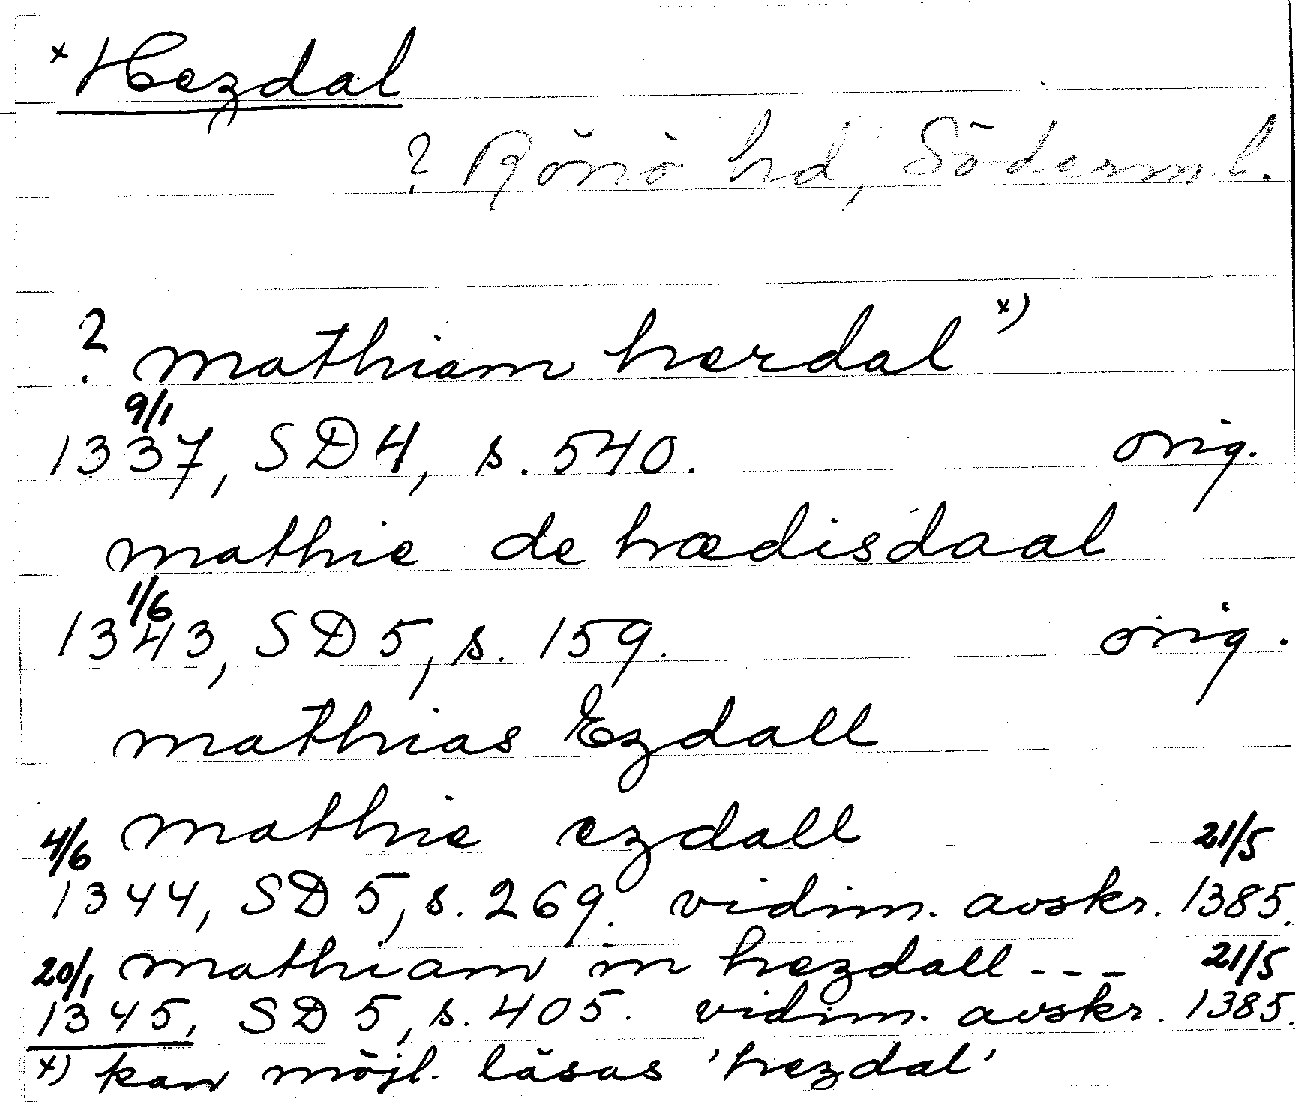 x Hezdal
? Rönö hd, Söderml.
? mathiam herdal x)
9/1
1337, SD 4, s. 540. orig.
mathie de hædisdaal
1/6
1343, SD 5, s. 159. orig.
mathias Ezdall
mathie ezdall
4/6 21/5
1344, SD 5, s. 269. vidim. avskr. 1385.
20/1 mathiam in hezdall --- 21/5
1345, SD 5, s. 405. vidim. avskr. 1385.
x) kan möjl. läsas 'hezdal'